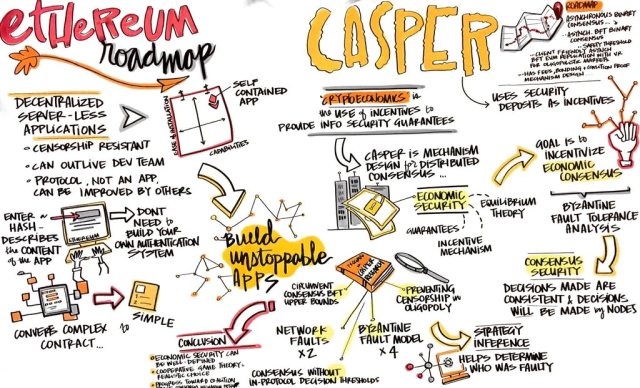 ETHEREUM
roadmap
DECENTRALIZED
SERVER-LESS
APPLICATIONS
CENSORSHIP RESISTANT
CAN OUTLIVE DEV TEAM
PROTOCOL, NOT AN APP,
CAN BE IMPROVED BY OTHERS
SELF
CONTAINED
APP
EASE of INSTALLATION
CAPABILITIES
ENTER a
HASH-
DESCRIBES
the CONTENT
OF THE APP
ETHEREUM
DON'T
NEED to
BUILD YOUR
OWN AUTHENTICATION
SYSTEM
CONVERTS COMPLEX to SIMPLE
CONTRACT...
Build
unstoppable
APPS
CONCLUSION
ECONOMIC SECURITY CAN
BE WELL-DEFINED
COOPERATIVE GAME THEORY-
REALISTIC CHOICE
PROGRESS TOWARD COALITION
CASPER
CRYPTOECONOMICS is
the USE of INCENTIVES to
PROVIDE INFO SECURITY GUARANTEES
CASPER is MECHANISM
DESIGN for DISTRIBUTED
CONSENSUS...
ECONOMIC
SECURITY
EQUILIBRIUM
THEORY
GUARANTEES
INCENTIVE
MECHANISM
CASPER
RESEARCH
CIRCUMVENT
CONSENSUS BFT
UPPER BOUNDS
PREVENTING
CENSORSHIP in
OLIGOPOLY
NETWORK
FAULTS
x2
BYZANTINE
FAULT MODEL
x4
CONSENSUS WITHOUT
IN-PROTOCOL DECISION THRESHOLDS
ROADMAP
ASYNCHRONOUS BINARY
CONSENSUS...
ASYNCH. BFT BINARY
CONSENSUS
SAFETY THRESHOLD
CLIENT FRIENDLY ASYNCH
BFT EVM REPLICATION WITH VR
FOR OLIGOPOLISTIC MARKETS
HAS FEES, BONDING & COALITION PROOF
MECHANISM DESIGN
USES SECURITY
DEPOSITS AS INCENTIVES
GOAL is to
INCENTIVIZE
ECONOMIC
CONSENSUS
BYZANTINE
FAULT TOLERANCE
ANALYSIS
CONSENSUS
SECURITY
DECISIONS MADE ARE
CONSISTENT & DECISIONS
WILL BE MADE by NODES
STRATEGY
INFERENCE
HELPS DETERMINE
WHO WAS FAULTY